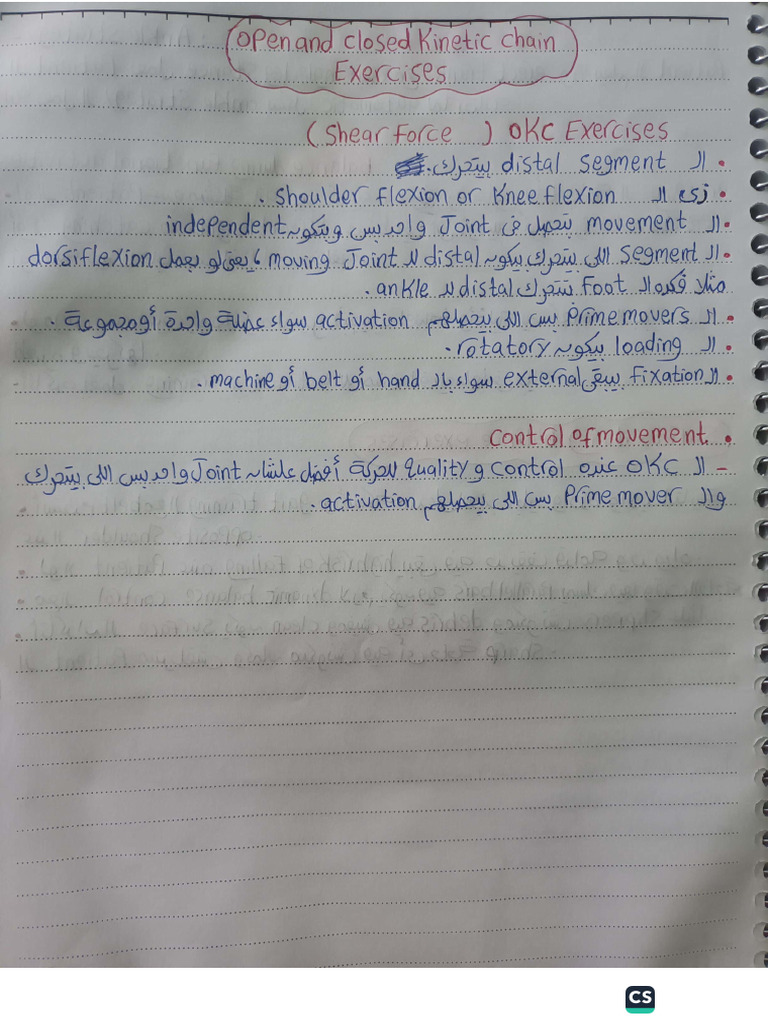 Open and closed Kinetic chain
Exercises
(Shear Force) OKC Exercises
• الـ distal segment بيتحرك.
• زى الـ shoulder flexion or Knee flexion.
• الـ movement بتحصل فى Joint واحد بس وبتكون independent
• الـ segment اللى بيتحرك بيكون distal للـ moving Joint، يعنى لو بعمل dorsiflexion
مثلا فكده الـ Foot بتتحرك distal للـ ankle.
• الـ Prime movers بس اللى بيحصلهم activation سواء عضلة واحدة أو مجموعة.
• الـ loading بيكون rotatory.
• الـ Fixation بيبقى external سواء بالـ hand أو belt أو machine.
• Control of movement.
- الـ OKC عنده control و quality للحركة أفضل علشان Joint واحد بس اللى بيتحرك
والـ Prime mover بس اللى بيحصلهم activation.
CS